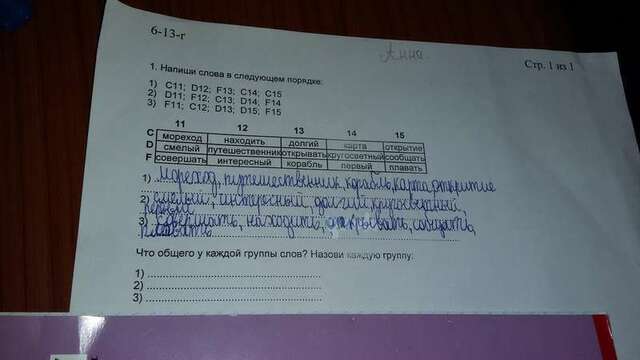 6-13-г
Анна.
Стр. 1 из 1
1. Напиши слова в следующем порядке:
1) C11; D12; F13; C14; C15
2) D11; F12; C13; D14; F14
3) F11; C12; D13; D15; F15
11 12 13 14 15
C мореход находить долгий карта открытие
D смелый путешественник открывать кругосветный сообщать
F совершать интересный корабль первый плавать
1) мореход, путешественник, корабль, карта, открытие
2) смелый, интересный, долгий, кругосветный,
первый
3) совершать, находить, открывать, сообщать,
плавать
Что общего у каждой группы слов? Назови каждую группу:
1)
2)
3)